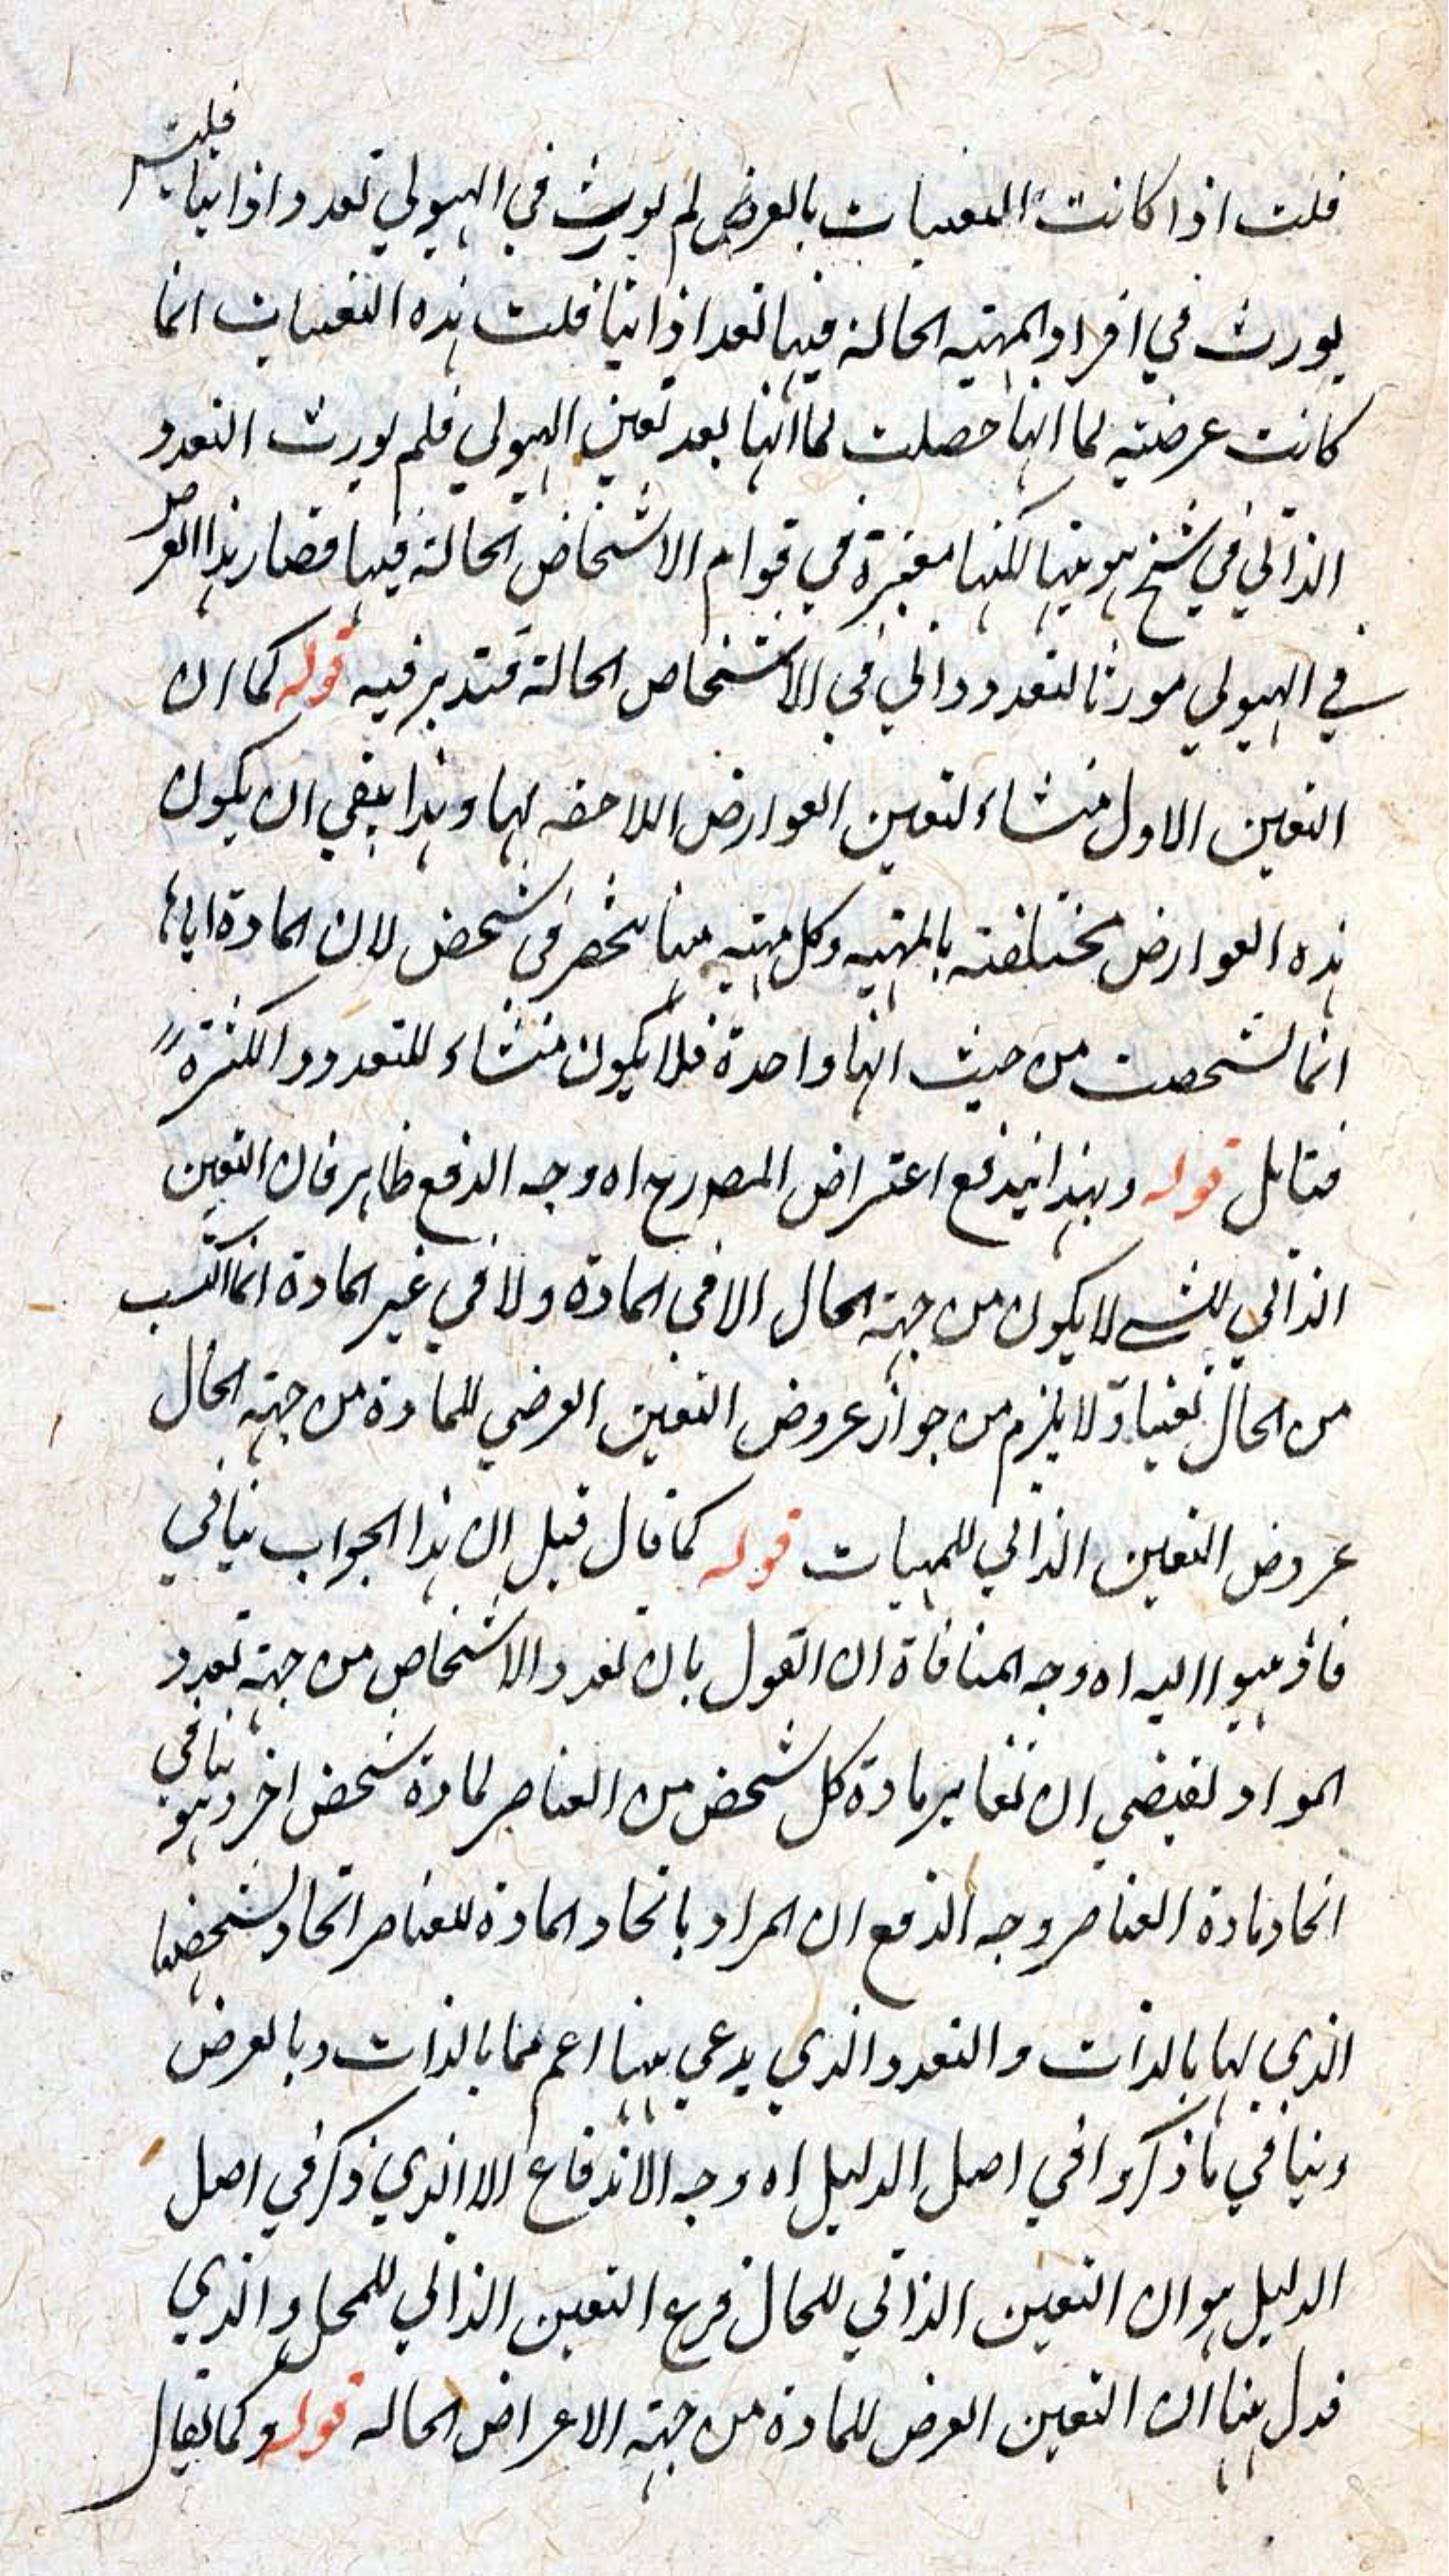 قلت اذا كانت التعينات بالعرض لم يورث في الهيولي تعددا ذاتيا فليف
يورث في افراد المهية الحالة فيها تعددا ذاتيا قلت هذه التعينات انما
كانت عرضية لما انها حصلت لما انها بعد تعين الهيولي فلم يورث التعدد
الذاتي في شخ هويتها لكنها معتبرة في قوام الاشخاص الحالة فيها فصار هذا العرض
في الهيولي مورثا لتعدد ذاتي في الاشخاص الحالة فتدبر فيه قوله كما ان
التعين الاول منشاء لتعين العوارض اللاحقه لها وهذا يبقى ان يكون
هذه العوارض مختلفته بالمهيه وكل مهيه منها منحصر في شخص لان المادة اياها
انما تشخصت من حيث انها واحدة فلا يكون منشاء للتعدد والكثرة
فتامل قوله وبهذا يندفع اعتراض المصدرح اه وجه الدفع ظاهر فان التعين
الذاتي للشے لا يكون من جهة الحال الا في المادة ولا في غير المادة انما اكتسب
من الحال تعينا ولا يلزم من جواز عروض التعين العرضي للمادة من جهة الحال
عروض التعين الذاتي للمهيات قوله كما قال قيل ان هذا الجواب ينافي
فاذهبوا اليه اه وجه المنافاة ان القول بان تعدد الاشخاص من جهة تعدد
المواد تقيضي ان تغاير مادة كل شخص من العناصر لمادة شخص اخر وهو ينافي
اتحاد مادة العناصر وجه الدفع ان المراد باتحاد المادة للعناصر اتحاد تشخصها
الذي لها بالذات والتعدد الذي يدعي ههنا اعم مما بالذات وبالعرض
وينافي ما ذكروا في اصل الدليل اه وجه الاندفاع الا الذي ذكر في اصل
الدليل هو ان التعين الذاتي للحال فرع التعين الذاتي للمحل والذي
فدل ههنا ان التعين العرض للمادة من جهة الاعراض الحاله قوله وكما يقال